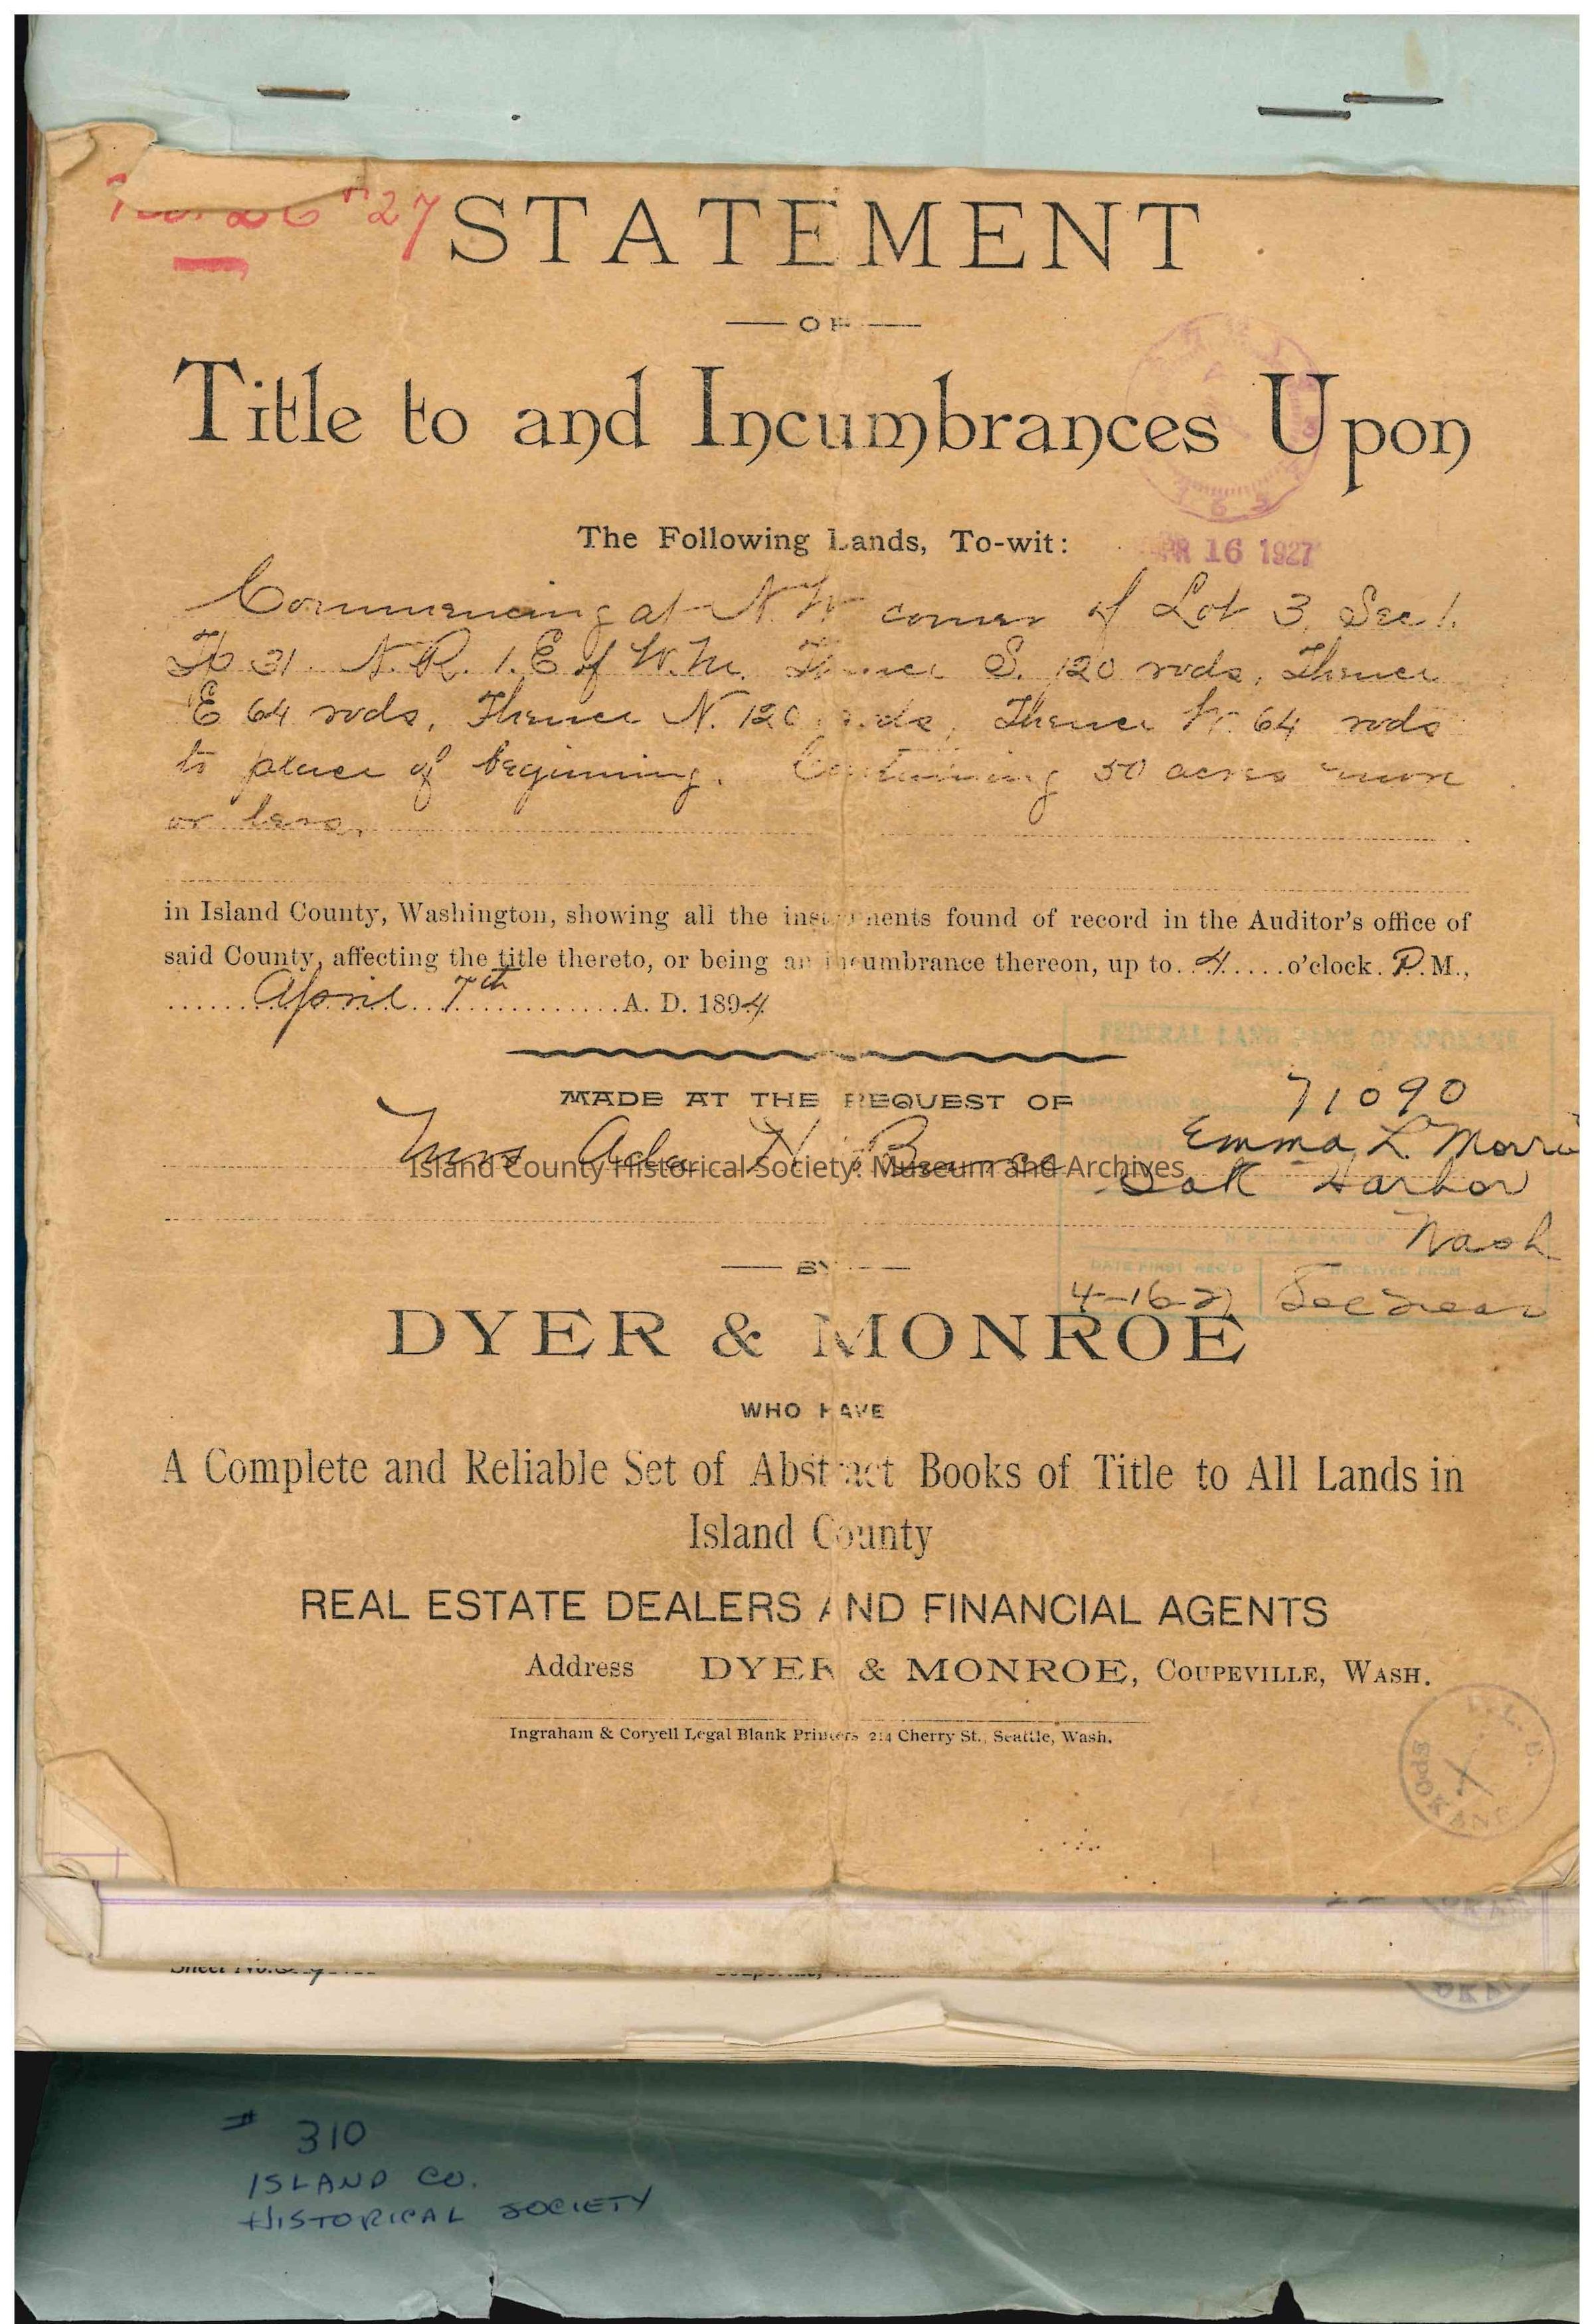 27
STATEMENT
OF
Title to and Incumbrances Upon
The Following Lands, To-wit:
APR 16 1927
Commencing at N.W corner of Lot 3, Sec 1.
Tp 31. N.R. 1.E of W.M. Thence S. 120 rods, Thence
E 64 rods, Thence N. 120 rods, Thence W. 64 rods
to place of beginning. Containing 50 acres more
or less,
in Island County, Washington, showing all the instruments found of record in the Auditor's office of
said County, affecting the title thereto, or being an incumbrance thereon, up to 4 o'clock P.M.,
April 7th A. D. 1894
FEDERAL LAND BANK OF SPOKANE
MADE AT THE REQUEST OF
71090
Mrs Ada N.
Emma L. Morris
Island County Historical Society: Museum and Archives
Oak Harbor
Wash
BY
DATE FIRST REC'D
RECEIVED FROM
4-16-27
DYER & MONROE
WHO HAVE
A Complete and Reliable Set of Abstract Books of Title to All Lands in
Island County
REAL ESTATE DEALERS AND FINANCIAL AGENTS
Address DYER & MONROE, COUPEVILLE, WASH.
Ingraham & Coryell Legal Blank Printers 214 Cherry St., Seattle, Wash.
F.L.B.
SPOKANE
Sheet No.
# 310
ISLAND CO.
HISTORICAL SOCIETY